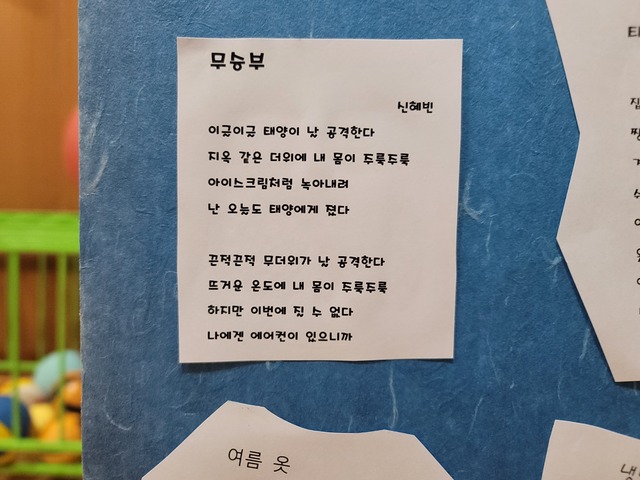 무승부
신혜빈
이글이글 태양이 날 공격한다
지옥 같은 더위에 내 몸이 주룩주룩
아이스크림처럼 녹아내려
난 오늘도 태양에게 졌다
끈적끈적 무더위가 날 공격한다
뜨거운 온도에 내 몸이 주룩주룩
하지만 이번에 질 수 없다
나에겐 에어컨이 있으니까
여름 옷